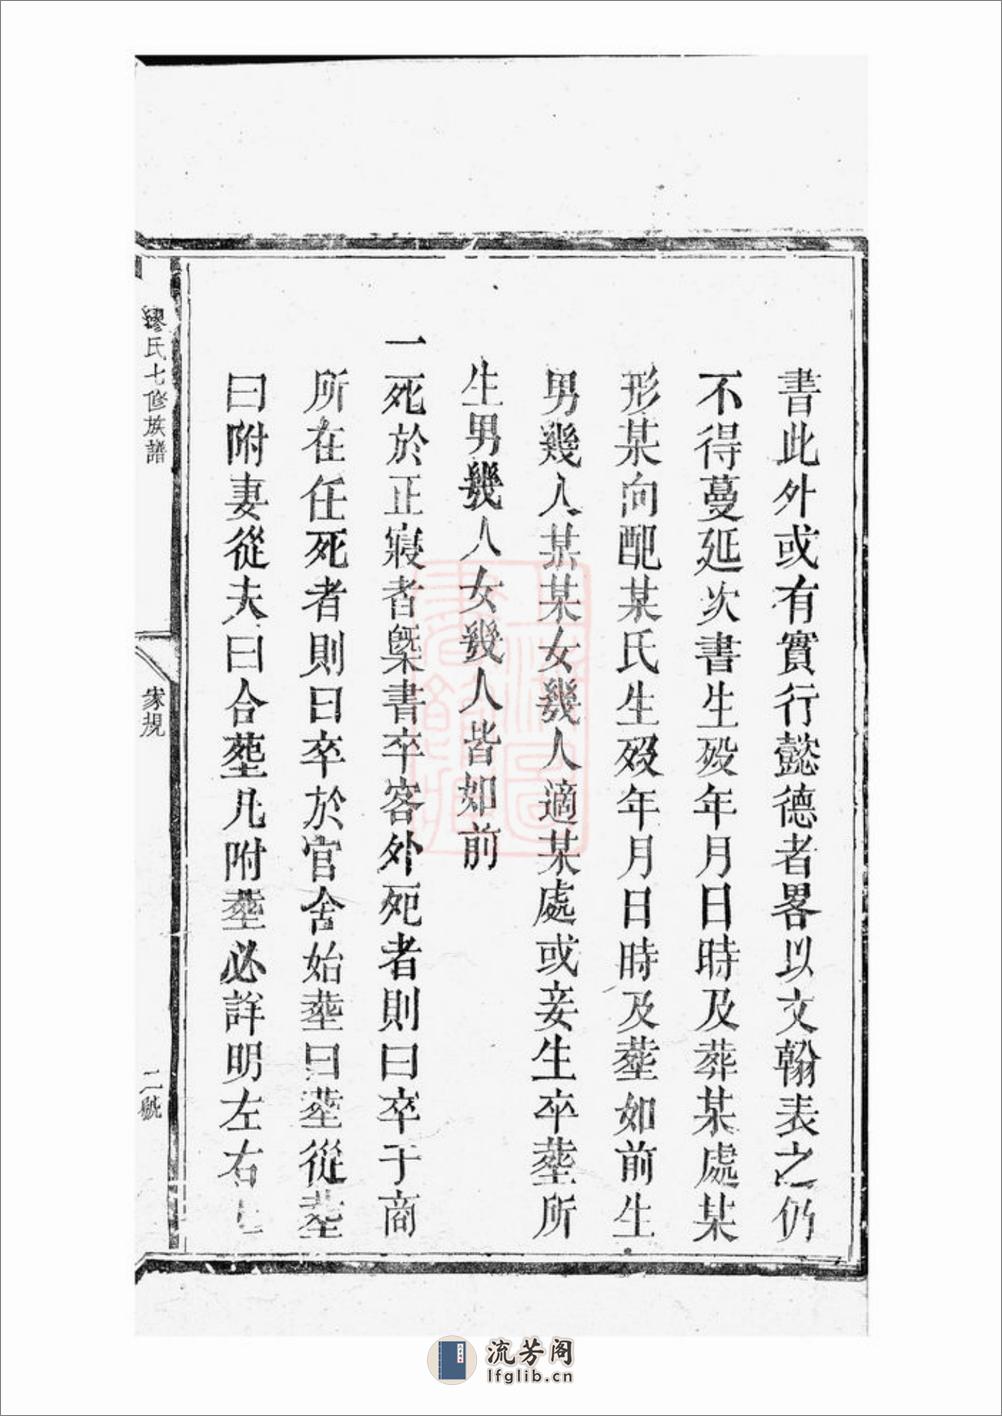 書此外或有實行懿德者畧以文翰表之仍
不得蔓延次書生殁年月日時及葬某處某
形某向配某氏生殁年月日時及塟如前生
男幾人某某女幾人適某處或妾生卒塟所
生男幾人女幾人皆如前
一死於正寢者槩書卒客外死者則曰卒于商
所在任死者則曰卒於官舍始塟曰塟從塟
曰附妻從夫曰合塟凡附塟必詳明左右
繆氏七修族譜
家規
二號
流芳阁
lfglib.cn